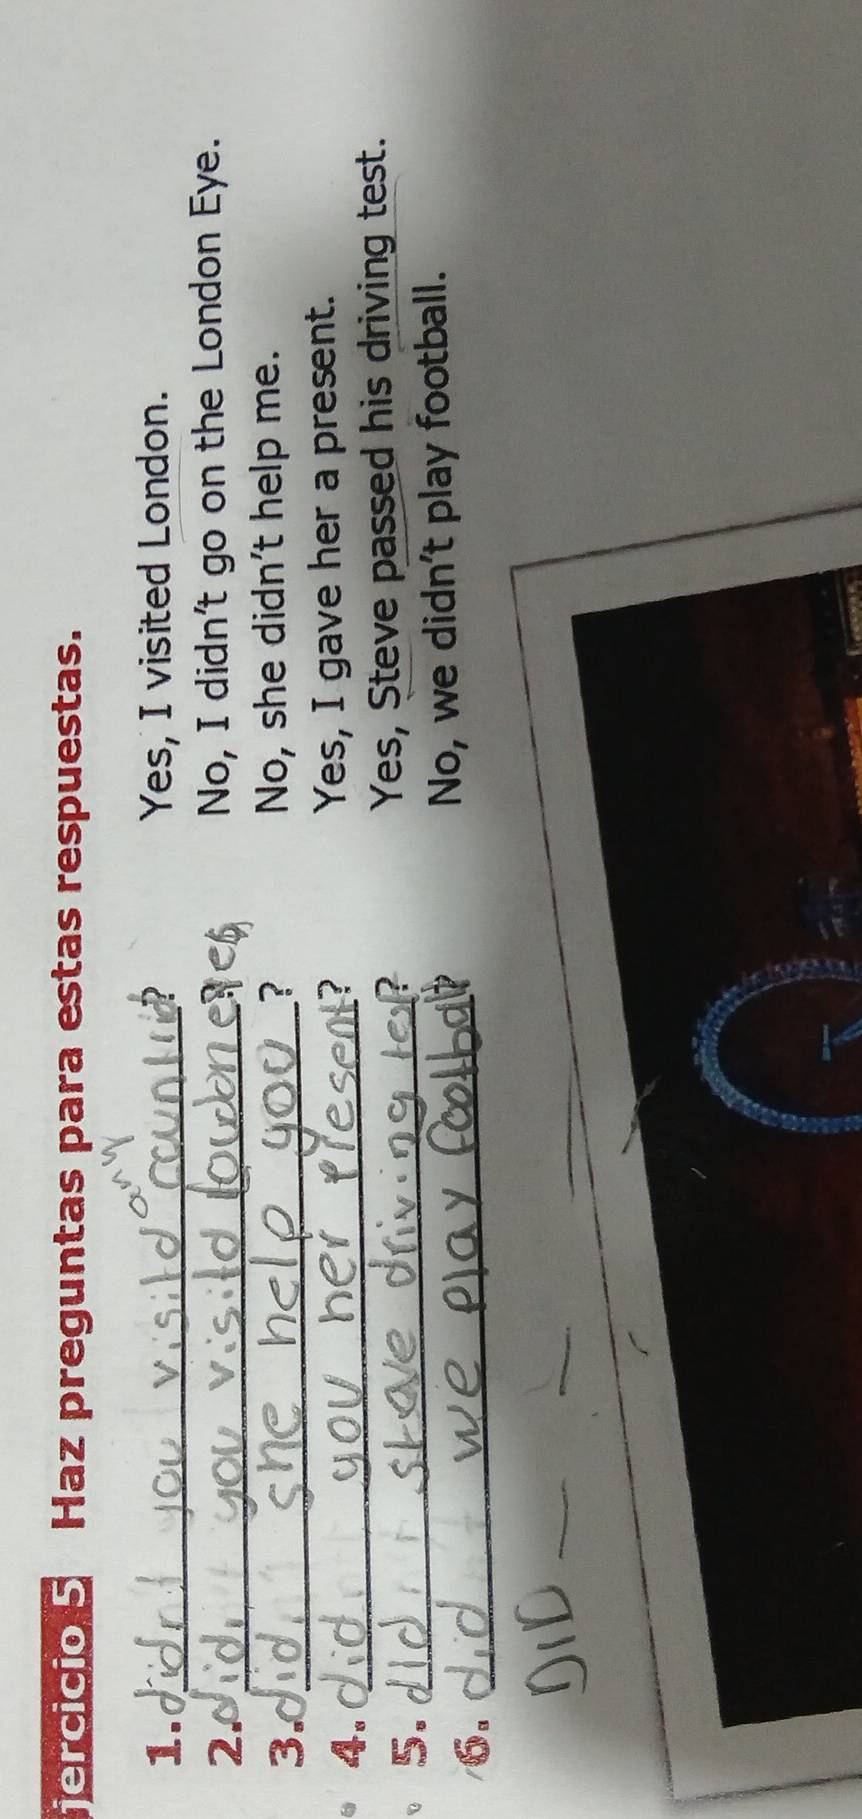 jercicio 5 Haz preguntas para estas respuestas.
1. did you visitd any ? Yes, I visited London.
2. did you visitd ? No, I didn't go on the London Eye.
3. did she help you ? No, she didn't help me.
4. did you her present? Yes, I gave her a present.
5. did steve driving test? Yes, Steve passed his driving test.
6. did we play football? No, we didn't play football.
DID